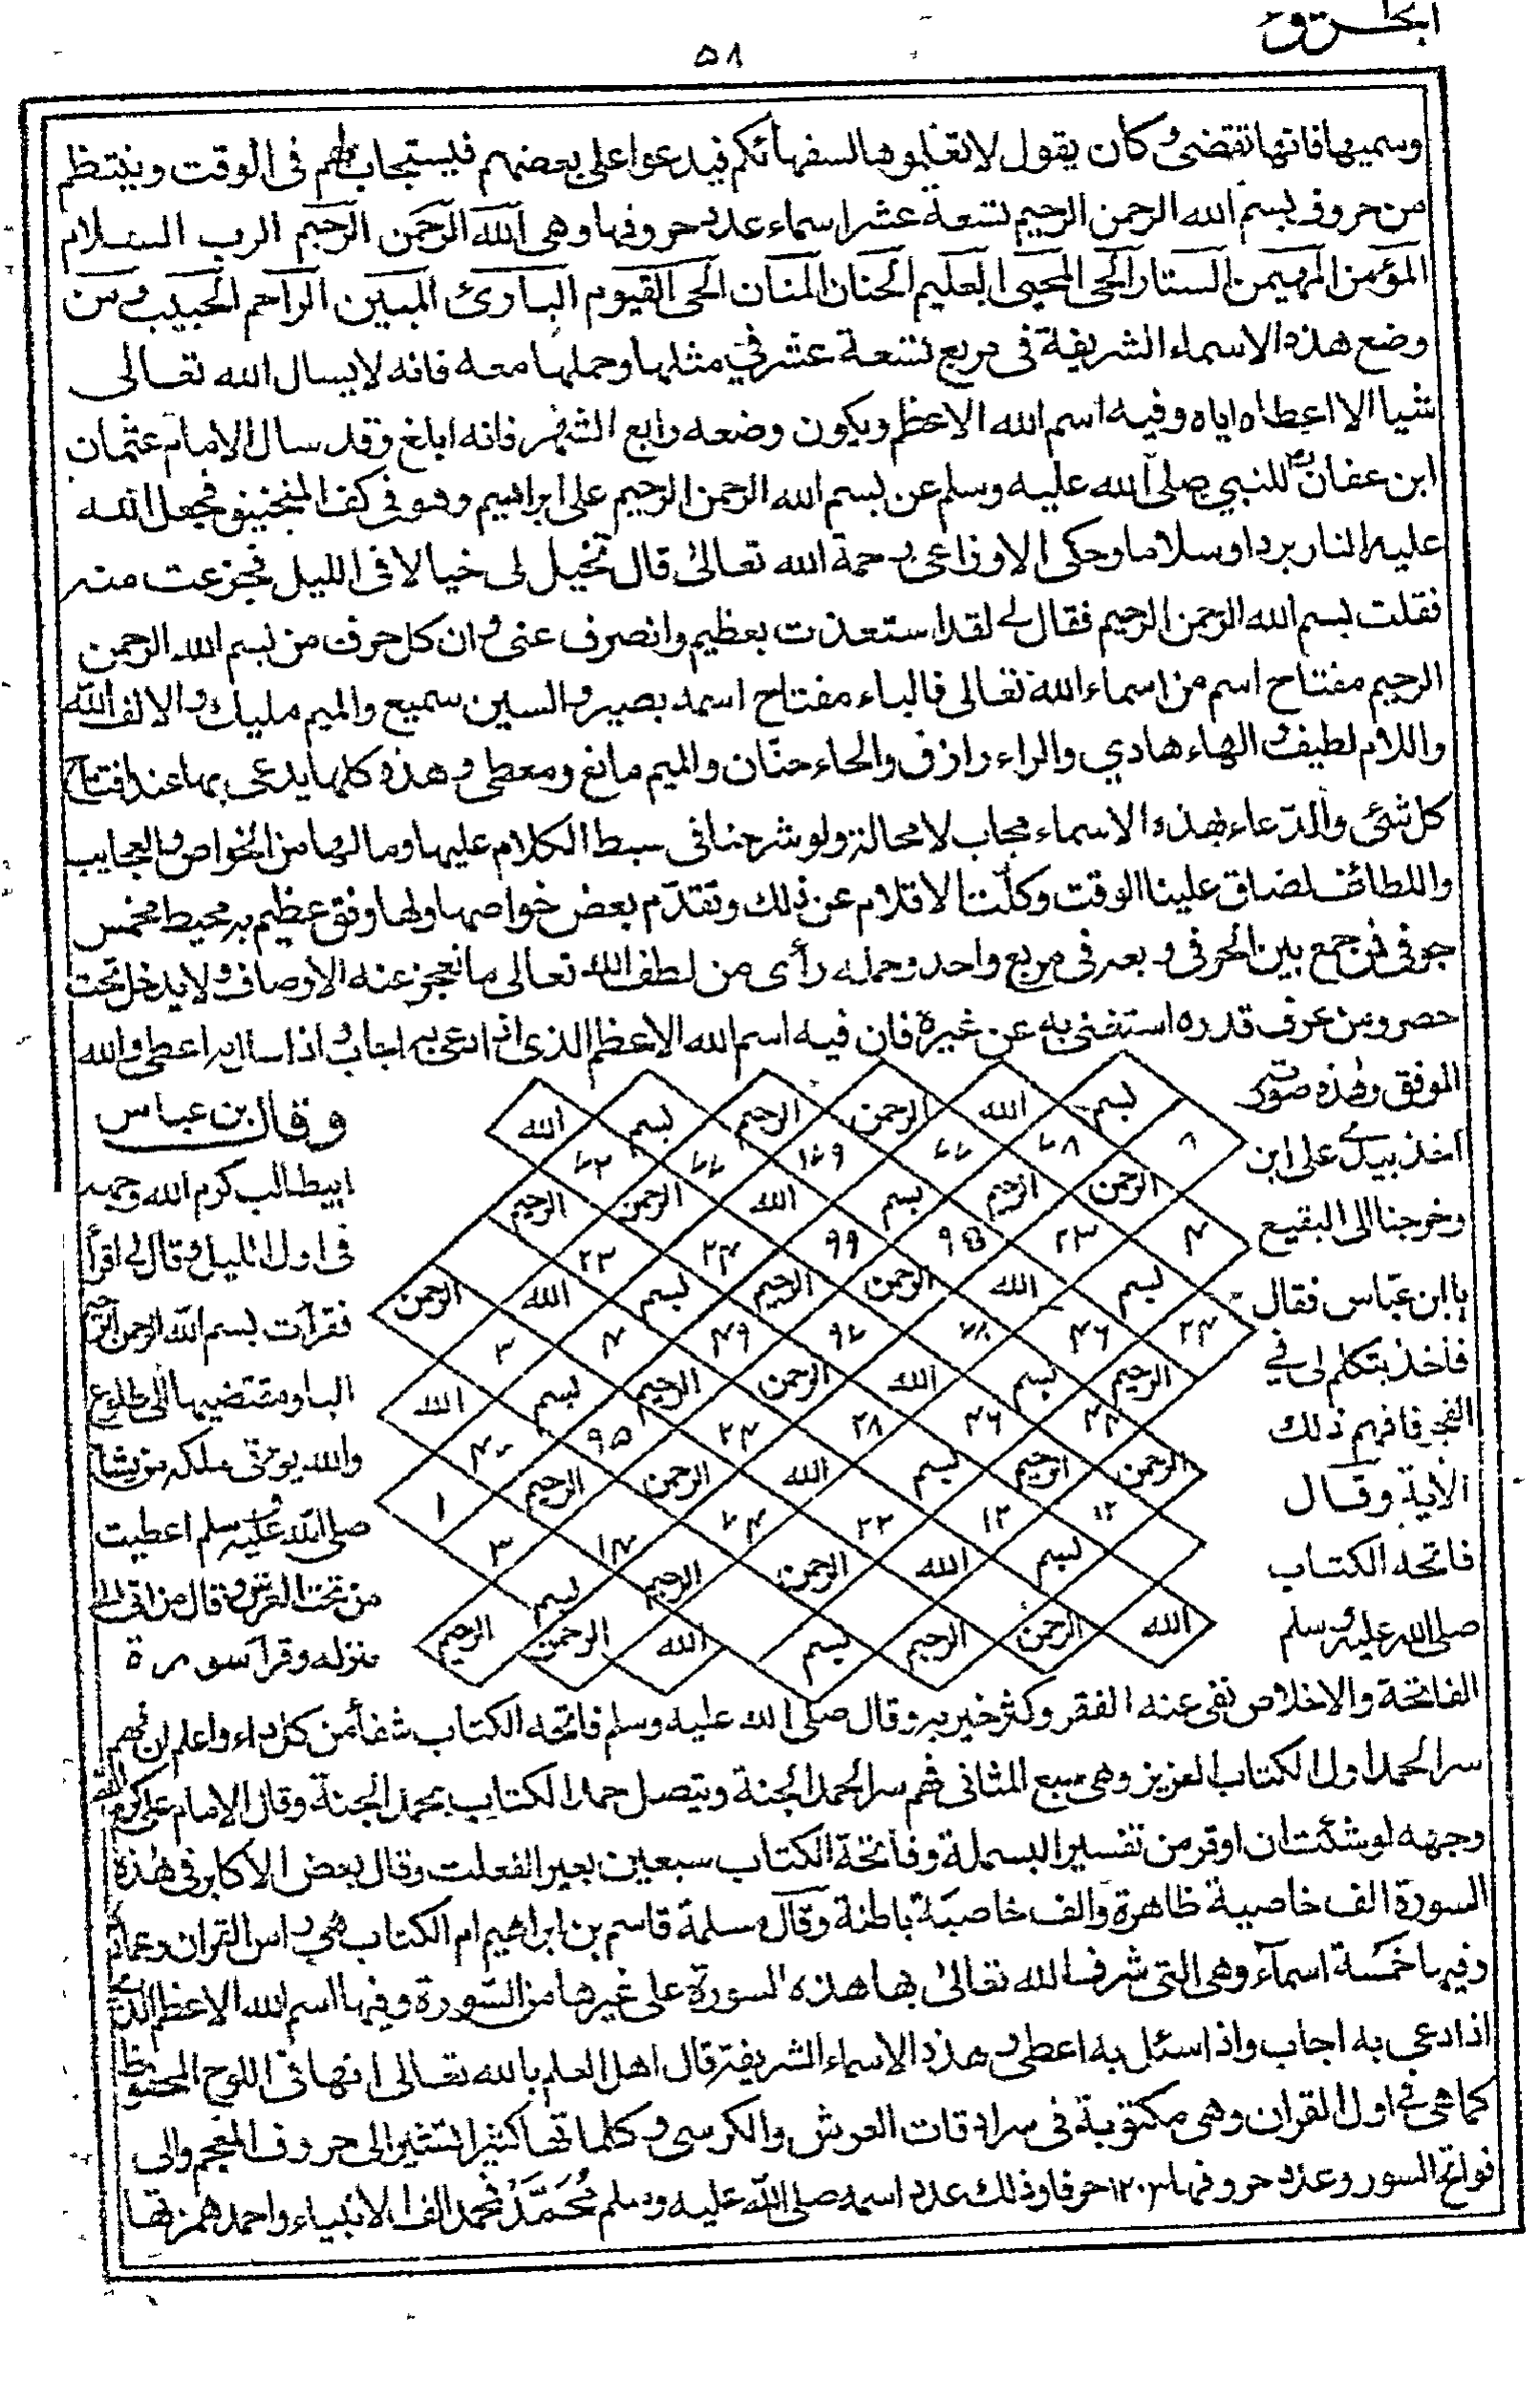 الجـــزء
٥٨
وسميها فانها تقضى وكان يقول لا تعلموها السفهائكم فيدعوا على بعضهم فيستجاب لهم فى الوقت وينتظم
من حروف بسم الله الرحمن الرحيم تسعة عشر اسماء عدد حروفها وهى الله الرحمن الرحيم الرب السلام
المؤمن المهيمن الستار الحى المحيى العليم الحنان المنان الحى القيوم البارئ المبين الراحم الحبيب ومن
وضع هذه الاسماء الشريفة فى مربع تسعة عشر في مثلها وحملها معه فانه لا يسال الله تعالى
شيا الا اعطاه اياه وفيه اسم الله الاعظم ويكون وضعه رابع الشهر فانه ابلغ وقد سال الامام عثمان
ابن عفان للنبي صلى الله عليه وسلم عن بسم الله الرحمن الرحيم على ابراهيم وهو فى كفة المنجنيق فجعل الله
عليه النار بردا وسلاما وحكى الاوزاعى رحمة الله تعالى قال تخيل لى خيالا فى الليل فجزعت منه
فقلت بسم الله الرحمن الرحيم فقال لى لقد استعذت بعظيم وانصرف عنى وان كل حرف من بسم الله الرحمن
الرحيم مفتاح اسم من اسماء الله تعالى فالباء مفتاح اسمه بصير والسين سميع والميم مليك والالف الله
واللام لطيف والهاء هادي والراء رازق والحاء حنان والميم مانع ومعطى وهذه كلها يدعى بها عند افتتاح
كل شئ والدعاء بهذه الاسماء مجاب لا محالة ولو شرحنا فى سبط الكلام عليها وما لها من الخواص والعجايب
واللطائف لضاق علينا الوقت وكلت الاقلام عن ذلك وتقدم بعض خواصها ولها وفق عظيم به محيط مخمس
جوفى فمن جمع بين الحرفى و فى مربع واحد وحمله رأى من لطف الله تعالى ما تعجز عنه الاوصاف ولا يدخل تحت
حصر ومن عرف قدره استغنى به عن غيره فان فيه اسم الله الاعظم الذى اذا دعى به اجاب واذا سال به اعطى والله
الموفق وهذه صورته
بسم الله الرحمن الرحيم بسم الله
٨ ٧٨ ٧٧ ١٧٩ ٧٧ ٧٢
الرحمن الرحيم بسم الله الرحمن الرحيم
٤ ٢٣ ٩٥ ٩٩ ٢٤ ٢٣
بسم الله الرحمن الرحيم بسم الله الرحمن
٢٤ ٤٦ ٧٨ ٩٧ ٤٩ ٤ ٣
الرحيم بسم الله الرحمن الرحيم بسم الله
٤٤ ٤٦ ٢٨ ٢٤ ٩٥ ٤٠
الرحمن الرحيم بسم الله الرحمن الرحيم ١
١٢ ١٢ ٢٢ ٧٤ ١٤ ٣
بسم الله الرحمن الرحيم بسم
الله الرحمن الرحيم بسم الله الرحمن الرحيم
وقال بن عباس
اخذ بيدى على ابن ابيطالب كرم الله وجهه
وخرجنا الى البقيع فى اول الليل وقال لى اقرأ
يا ابن عباس فقال فقرأت بسم الله الرحمن الرحيم
فاخذ يتكلم لى في الباء ومقتضيها الى طلوع
الفجر فافهم ذلك والله يؤتى ملكه من يشا
الآية وقال صلى الله عليه وسلم اعطيت
فاتحة الكتاب من تحت العرش وقال من اتى الى
صلى الله عليه وسلم منزله وقرأ سورة
الفاتحة والاخلاص نفى عنه الفقر وكثر خير بيته وقال صلى الله عليه وسلم فاتحة الكتاب شفأ من كل داء واعلم ان فهم
سر الحمد اول الكتاب العزيز وهى سبع المثانى فهم سر الحمد الجنة ويتصل حمد الكتاب بحمد الجنة وقال الامام على كرم الله
وجهه لو شئت ان اوقر من تفسير البسملة وفاتحة الكتاب سبعين بعير الفعلت وقال بعض الاكابر فى هذه
السورة الف خاصية ظاهرة والف خاصية باطنة وقال مسلمة قاسم بن ابراهيم ام الكتاب هي راس القران وعماد
وفيها خمسة اسماء وهى التى شرف الله تعالى بها هذه السورة على غيرها من السورة وفيها اسم الله الاعظم الذى
اذا دعى به اجاب واذا سئل به اعطى وهذه الاسماء الشريفة قال اهل العلم بالله تعالى انها فى اللوح المحفوظ
كما هى في اول القران وهى مكتوبة فى سرادقات العرش والكرسى وكلماتها كثير تشير الى حروف المعجم والى
فواتح السور وعدد حروفها ١٢٠٣ حرفا وذلك عدد اسمه صلى الله عليه وسلم مُحَمَّدُ فمحمد الف الانبياء واحمد همزتها